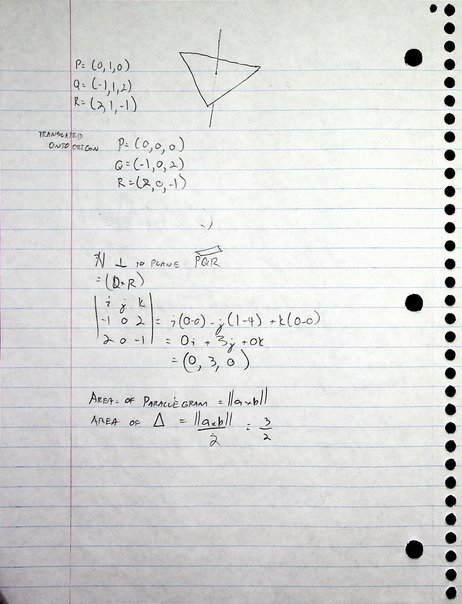 P = (0,1,0)
Q = (-1,1,2)
R = (2,1,-1)
TRANSLATED
ONTO ORIGIN
P = (0,0,0)
Q = (-1,0,2)
R = (2,0,-1)
N ⊥ TO PLANE PQR
= (Q×R)
| i j k |
| -1 0 2 | = i(0-0) - j(1-4) + k(0-0)
| 2 0 -1 | = 0i + 3j + 0k
= (0, 3, 0)
AREA OF PARALLELEGRAM = ||a×b||
AREA OF Δ = ||a×b||/2 = 3/2